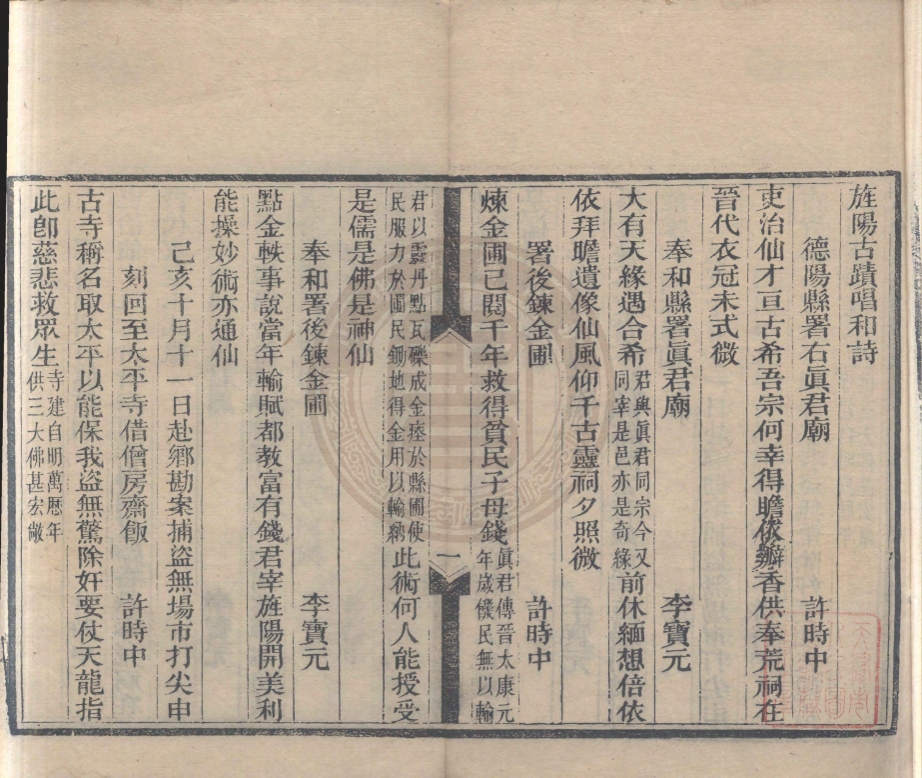 旌陽古蹟唱和詩
德陽縣署右眞君廟 許時中
吏治仙才亘古希吾宗何幸得瞻依瓣香供奉荒祠在
晉代衣冠未式微
奉和縣署眞君廟 李寶元
大有天緣遇合希君與眞君同宗今又同宰是邑亦是奇緣前休緬想倍依
依拜瞻遺像仙風仰千古靈祠夕照微
署後鍊金圃 許時中
煉金圃已閱千年救得貧民子母錢眞君傳晉太康元年歲饑民無以輸
一
君以靈丹點瓦礫成金瘞於縣圃使民服力於圃民鋤地得金用以輸納此術何人能授受
是儒是佛是神仙
奉和署後鍊金圃 李寶元
點金軼事說當年輸賦都教富有錢君宰旌陽開美利
能操妙術亦通仙
己亥十月十一日赴鄉勘案捕盜無場市打尖申
刻回至太平寺借僧房齋飯 許時中
古寺稱名取太平以能保我盜無驚除奸要仗天龍指
此卽慈悲救眾生寺建自明萬歷年供三大佛甚宏敞